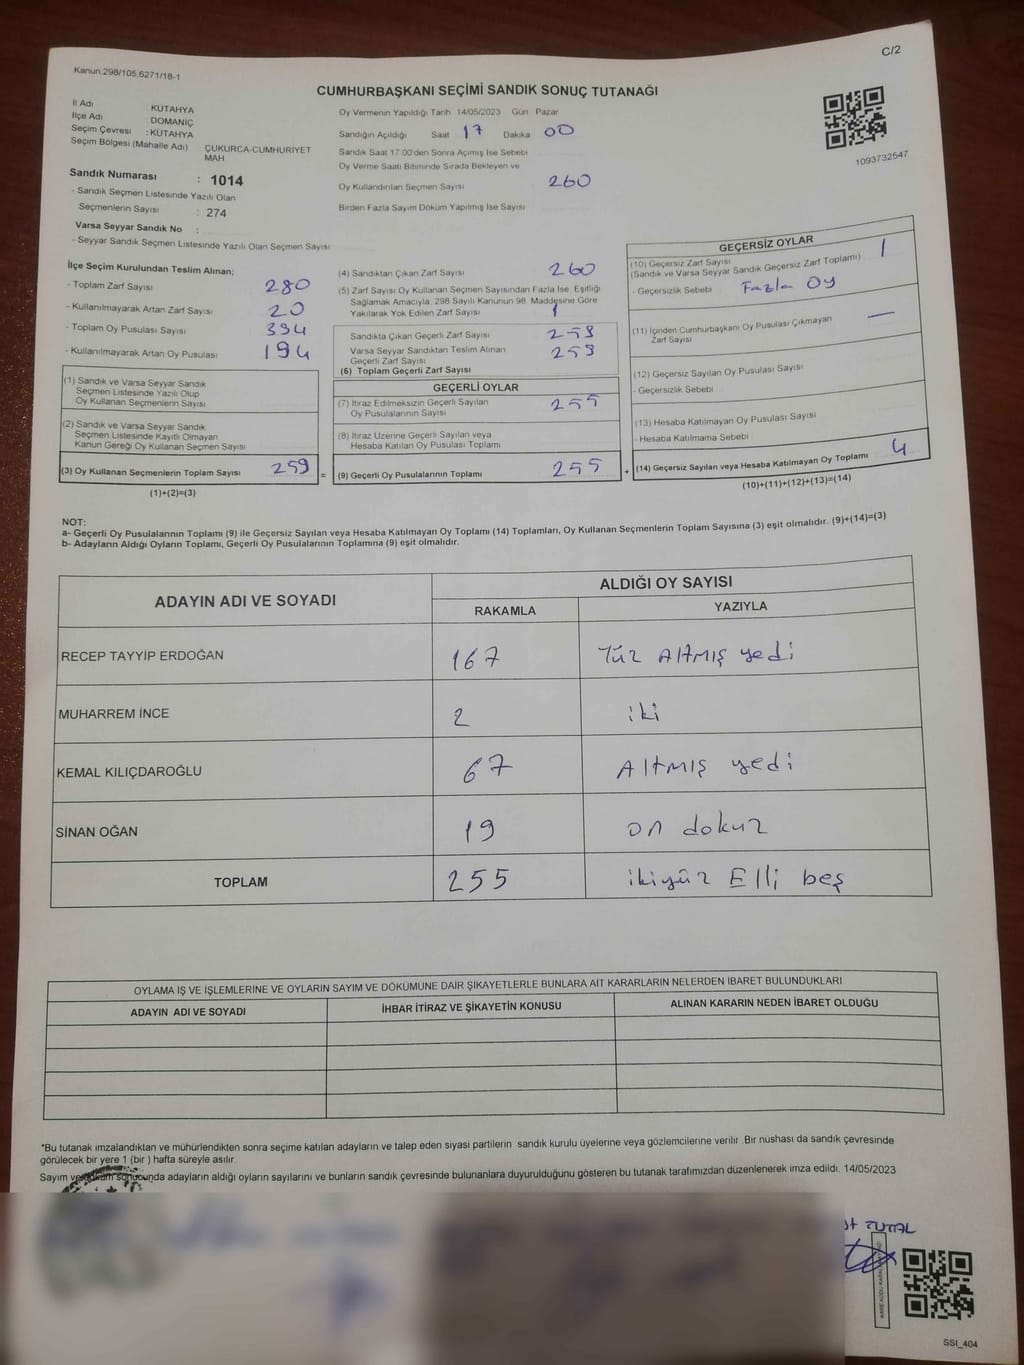 C/2
Kanun,298/105,6271/18-1
CUMHURBAŞKANI SEÇİMİ SANDIK SONUÇ TUTANAĞI
İl Adı KÜTAHYA
İlçe Adı DOMANİÇ
Seçim Çevresi : KÜTAHYA
Seçim Bölgesi (Mahalle Adı) ÇUKURCA-CUMHURİYET MAH
Sandık Numarası : 1014
- Sandık Seçmen Listesinde Yazılı Olan
Seçmenlerin Sayısı : 274
Varsa Seyyar Sandık No :
- Seyyar Sandık Seçmen Listesinde Yazılı Olan Seçmen Sayısı
Oy Vermenin Yapıldığı Tarih 14/05/2023 Gün Pazar
Sandığın Açıldığı Saat 17 Dakika 00
Sandık Saat 17:00'den Sonra Açılmış İse Sebebi
Oy Verme Saati Bitiminde Sırada Bekleyen ve
Oy Kullandırılan Seçmen Sayısı 260
Birden Fazla Sayım Döküm Yapılmış İse Sayısı
1093732547
İlçe Seçim Kurulundan Teslim Alınan;
- Toplam Zarf Sayısı 280
- Kullanılmayarak Artan Zarf Sayısı 20
- Toplam Oy Pusulası Sayısı 394
- Kullanılmayarak Artan Oy Pusulası 194
(1) Sandık ve Varsa Seyyar Sandık
Seçmen Listesinde Yazılı Olup
Oy Kullanan Seçmenlerin Sayısı
(2) Sandık ve Varsa Seyyar Sandık
Seçmen Listesinde Kayıtlı Olmayan
Kanun Gereği Oy Kullanan Seçmen Sayısı
(3) Oy Kullanan Seçmenlerin Toplam Sayısı 259 =
(1)+(2)=(3)
(4) Sandıktan Çıkan Zarf Sayısı 260
(5) Zarf Sayısı Oy Kullanan Seçmen Sayısından Fazla İse, Eşitliği
Sağlamak Amacıyla, 298 Sayılı Kanunun 98. Maddesine Göre
Yakılarak Yok Edilen Zarf Sayısı 1
Sandıkta Çıkan Geçerli Zarf Sayısı 259
Varsa Seyyar Sandıktan Teslim Alınan
Geçerli Zarf Sayısı 259
(6) Toplam Geçerli Zarf Sayısı
GEÇERLİ OYLAR
(7) İtiraz Edilmeksizin Geçerli Sayılan
Oy Pusulalarının Sayısı 255
(8) İtiraz Üzerine Geçerli Sayılan veya
Hesaba Katılan Oy Pusulası Toplamı
(9) Geçerli Oy Pusulalarının Toplamı 255 +
GEÇERSİZ OYLAR
(10) Geçersiz Zarf Sayısı 1
(Sandık ve Varsa Seyyar Sandık Geçersiz Zarf Toplamı)
- Geçersizlik Sebebi Fazla Oy
(11) İçinden Cumhurbaşkanı Oy Pusulası Çıkmayan —
Zarf Sayısı
(12) Geçersiz Sayılan Oy Pusulası Sayısı
- Geçersizlik Sebebi
(13) Hesaba Katılmayan Oy Pusulası Sayısı
- Hesaba Katılmama Sebebi
(14) Geçersiz Sayılan veya Hesaba Katılmayan Oy Toplamı 4
(10)+(11)+(12)+(13)=(14)
NOT:
a- Geçerli Oy Pusulalarının Toplamı (9) ile Geçersiz Sayılan veya Hesaba Katılmayan Oy Toplamı (14) Toplamları, Oy Kullanan Seçmenlerin Toplam Sayısına (3) eşit olmalıdır. (9)+(14)=(3)
b- Adayların Aldığı Oyların Toplamı, Geçerli Oy Pusulalarının Toplamına (9) eşit olmalıdır.
ADAYIN ADI VE SOYADI ALDIĞI OY SAYISI
RAKAMLA YAZIYLA
RECEP TAYYİP ERDOĞAN 167 Yüz Altmış yedi
MUHARREM İNCE 2 iki
KEMAL KILIÇDAROĞLU 67 Altmış yedi
SİNAN OĞAN 19 on dokuz
TOPLAM 255 ikiyüz Elli beş
OYLAMA İŞ VE İŞLEMLERİNE VE OYLARIN SAYIM VE DÖKÜMÜNE DAİR ŞİKAYETLERLE BUNLARA AİT KARARLARIN NELERDEN İBARET BULUNDUKLARI
ADAYIN ADI VE SOYADI İHBAR İTİRAZ VE ŞİKAYETİN KONUSU ALINAN KARARIN NEDEN İBARET OLDUĞU
*Bu tutanak imzalandıktan ve mühürlendikten sonra seçime katılan adayların ve talep eden siyasi partilerin sandık kurulu üyelerine veya gözlemcilerine verilir .Bir nushası da sandık çevresinde
görülecek bir yere 1 (bir ) hafta süreyle asılır.
Sayım ve döküm sonucunda adayların aldığı oyların sayılarını ve bunların sandık çevresinde bulunanlara duyurulduğunu gösteren bu tutanak tarafımızdan düzenlenerek imza edildi. 14/05/2023
TUTAL
SSI_404